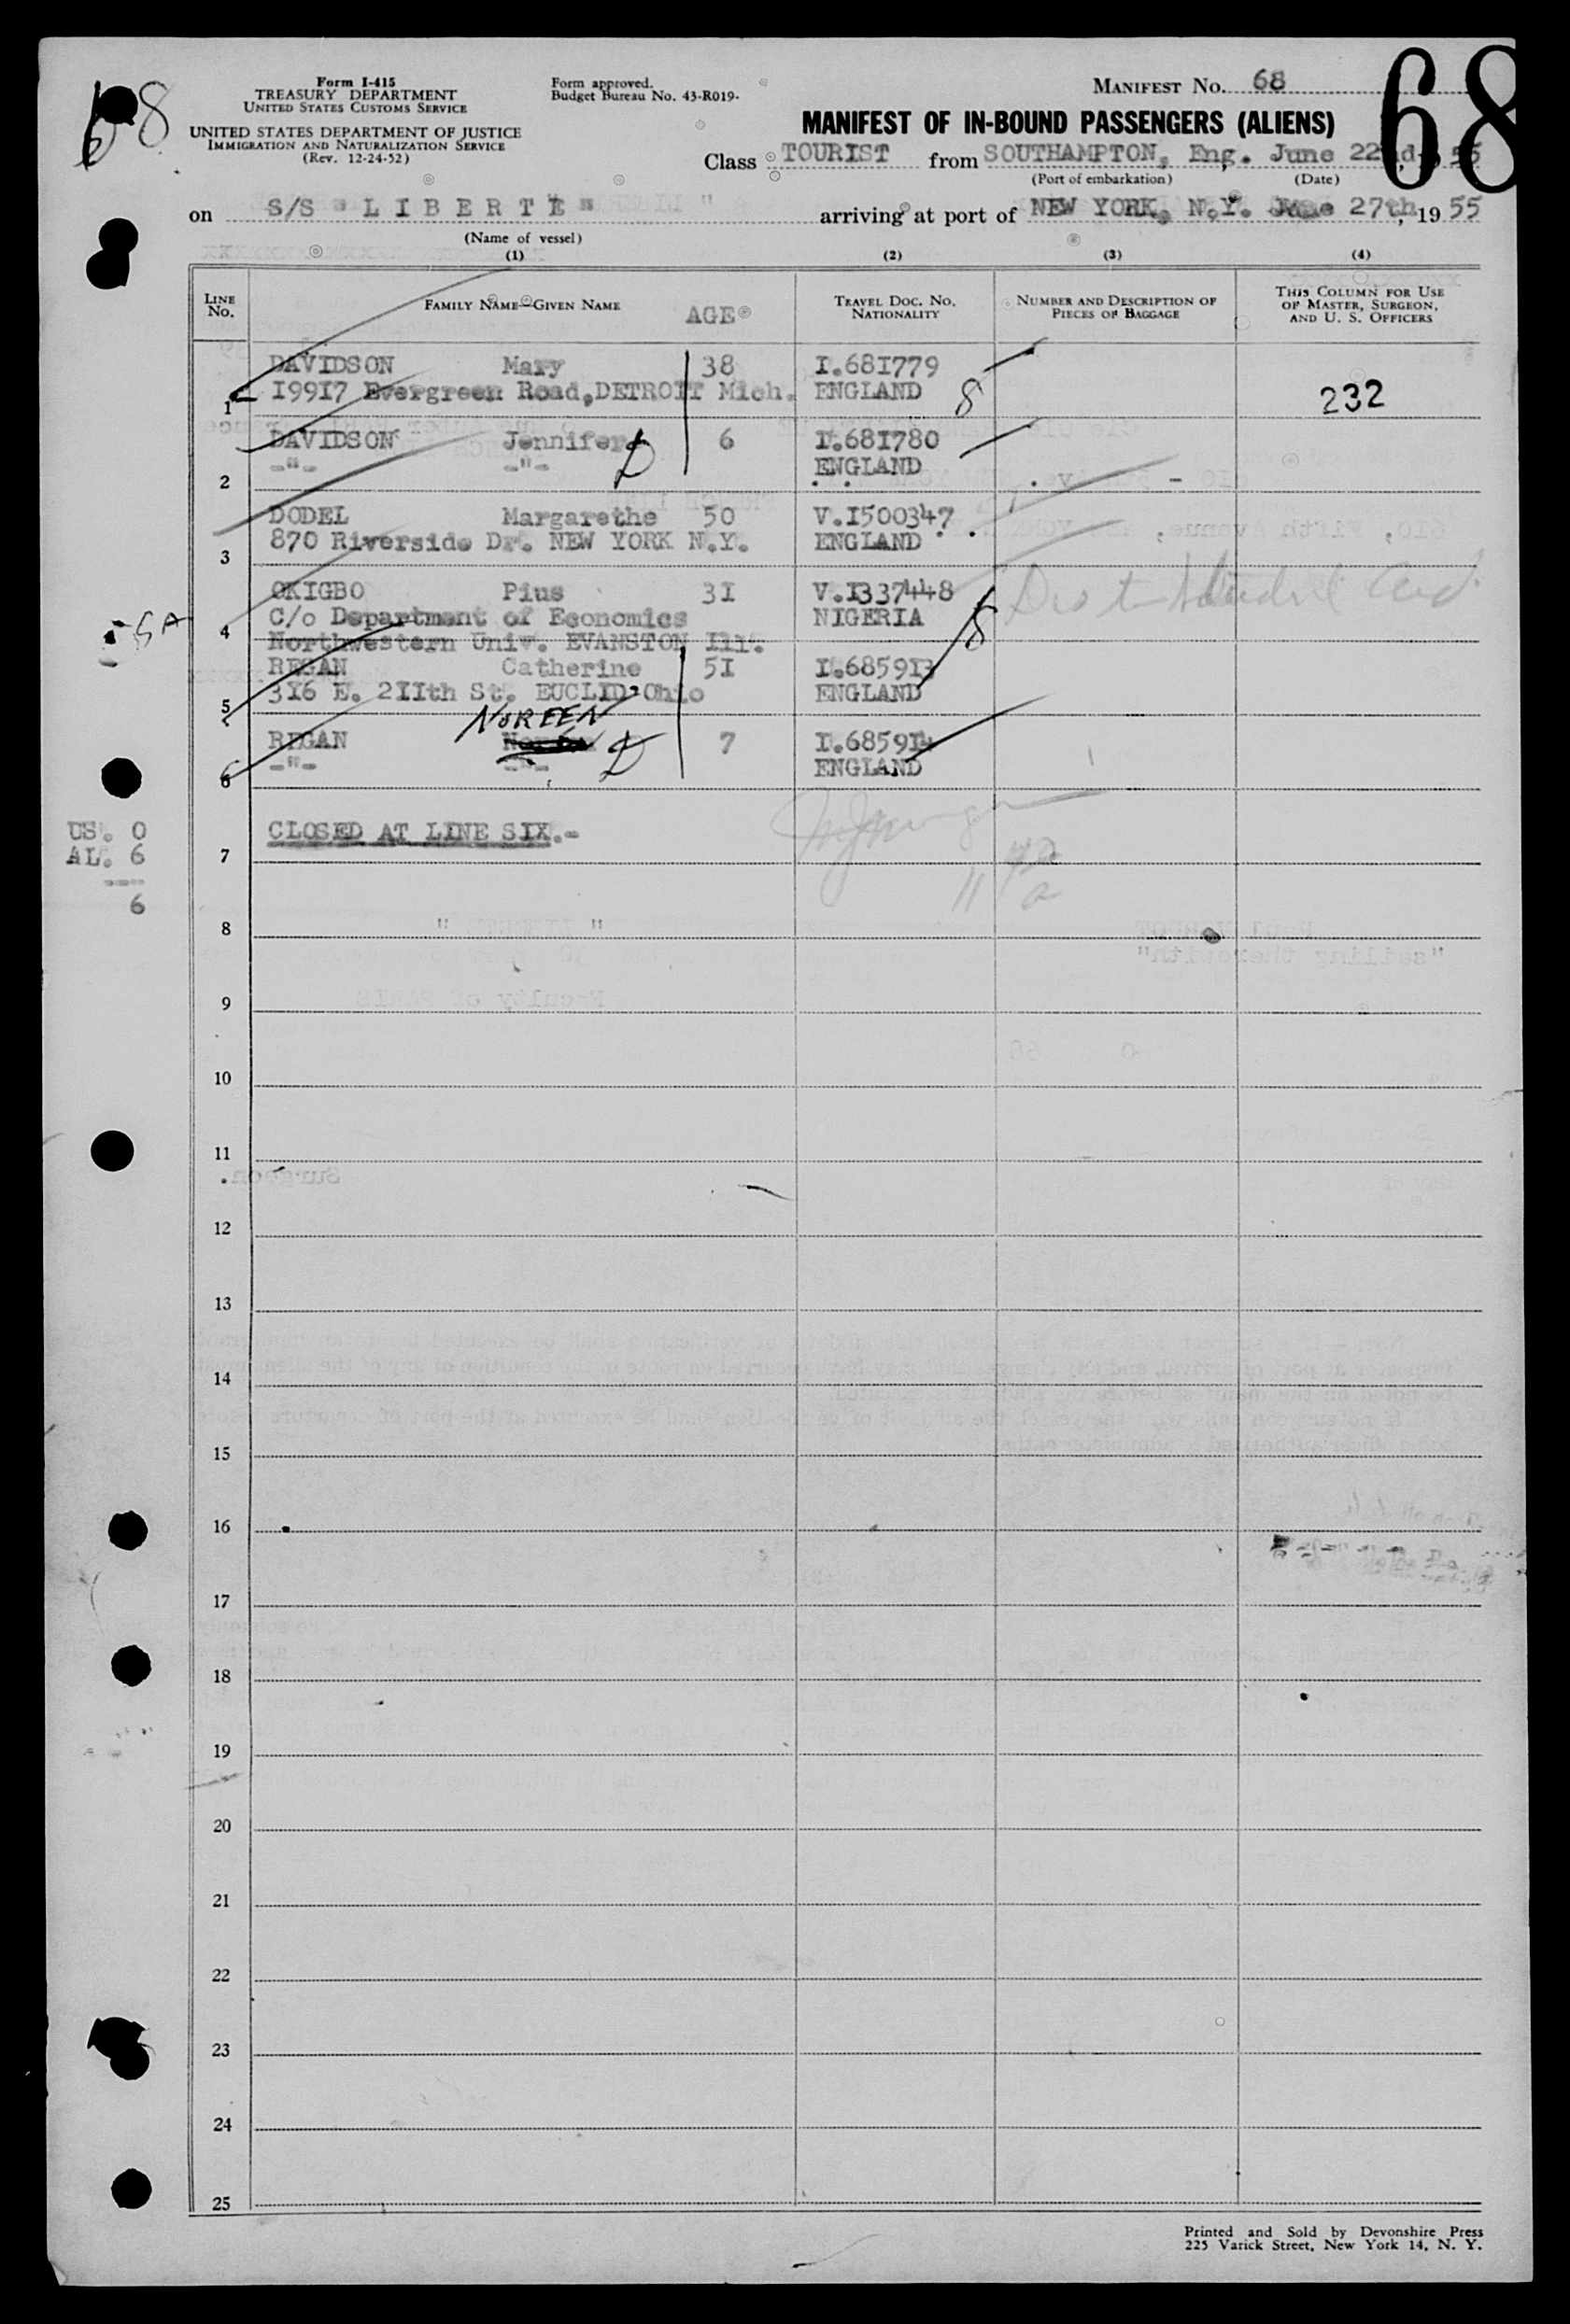 68
Form I-415
TREASURY DEPARTMENT
UNITED STATES CUSTOMS SERVICE
UNITED STATES DEPARTMENT OF JUSTICE
IMMIGRATION AND NATURALIZATION SERVICE
(Rev. 12-24-52)
Form approved.
Budget Bureau No. 43-R019-
MANIFEST No. 68
68
MANIFEST OF IN-BOUND PASSENGERS (ALIENS)
Class TOURIST from SOUTHAMPTON, Eng. June 22nd 55
(Port of embarkation) (Date)
on S/S " LIBERTE " arriving at port of NEW YORK, N.Y. June 27th, 19 55
(Name of vessel)
(1) (2) (3) (4)
LINE No. FAMILY NAME—GIVEN NAME AGE TRAVEL DOC. No. NATIONALITY NUMBER AND DESCRIPTION OF PIECES OF BAGGAGE THIS COLUMN FOR USE OF MASTER, SURGEON, AND U. S. OFFICERS
DAVIDSON Mary 38 I.681779
1 19917 Evergreen Road, DETROIT Mich. ENGLAND 8 232
DAVIDSON Jennifer D 6 I.681780
2 -"- -"- ENGLAND
DODEL Margarethe 50 V.I500347
3 870 Riverside Dr. NEW YORK N.Y. ENGLAND
OKIGBO Pius 31 V.I337448
4 C/o Department of Economics NIGERIA
Northwestern Univ. EVANSTON Ill.
REGAN Catherine 51 I.685913
5 316 E. 211th St. EUCLID Ohio ENGLAND
NOREEN
REGAN D 7 I.685914
6 -"- -"- ENGLAND
US. 0
AL. 6
6
7 CLOSED AT LINE SIX.-
8
9
10
11
12
13
14
15
16
17
18
19
20
21
22
23
24
25
Printed and Sold by Devonshire Press
225 Varick Street, New York 14, N. Y.